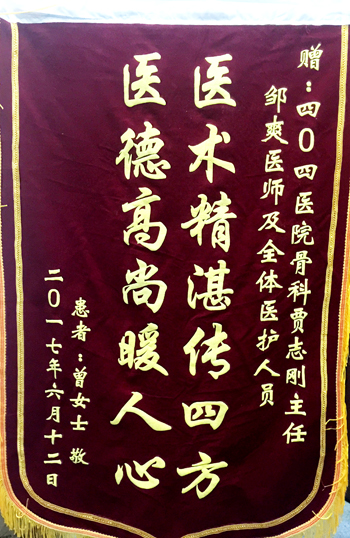 赠：四〇四医院骨科贾志刚主任
邹爽医师及全体医护人员
医术精湛传四方
医德高尚暖人心
患者：曾女士 敬
二〇一七年六月十二日